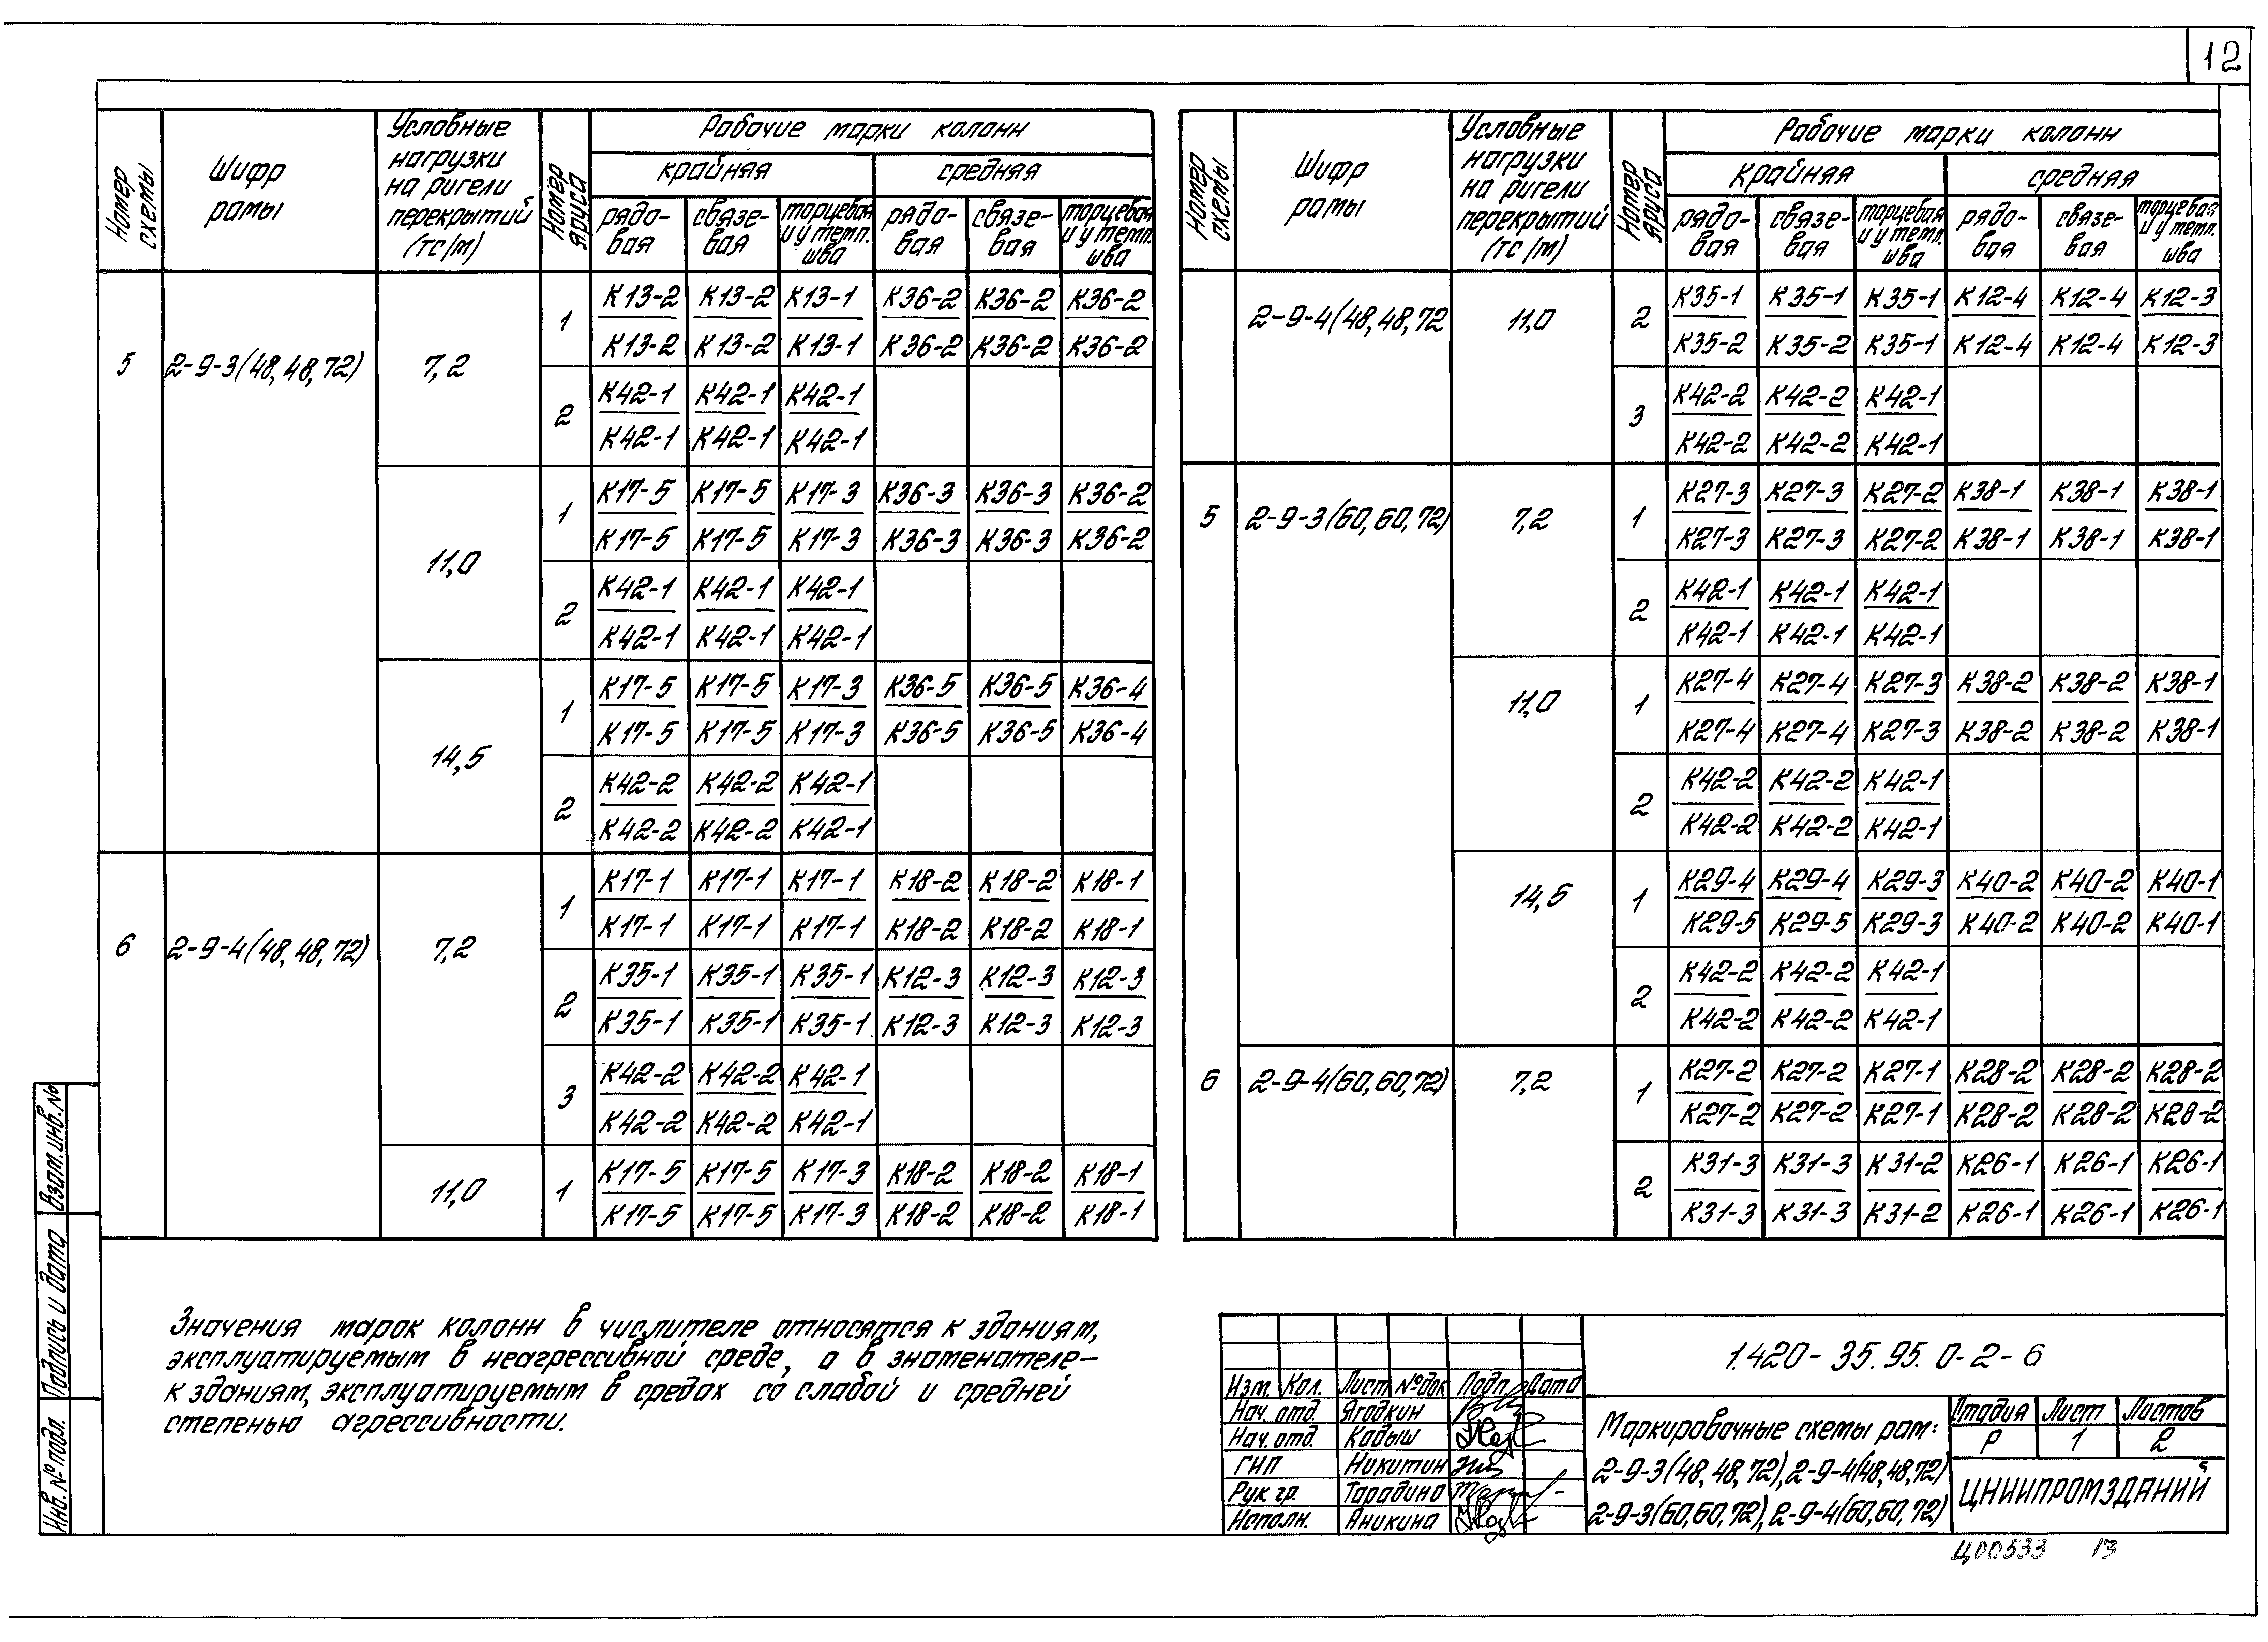 12
Номер схемы
Шифр рамы
Условные нагрузки на ригели перекрытий (тс/м)
Номер яруса
Рабочие марки колонн
крайняя средняя
рядовая связевая торцевая и у темп. шва рядовая связевая торцевая и у темп. шва
5 2-9-3(48,48,72) 7,2
1 К13-2 К13-2 К13-1 К36-2 К36-2 К36-2
К13-2 К13-2 К13-1 К36-2 К36-2 К36-2
2 К42-1 К42-1 К42-1
К42-1 К42-1 К42-1
11,0
1 К17-5 К17-5 К17-3 К36-3 К36-3 К36-2
К17-5 К17-5 К17-3 К36-3 К36-3 К36-2
2 К42-1 К42-1 К42-1
К42-1 К42-1 К42-1
14,5
1 К17-5 К17-5 К17-3 К36-5 К36-5 К36-4
К17-5 К17-5 К17-3 К36-5 К36-5 К36-4
2 К42-2 К42-2 К42-1
К42-2 К42-2 К42-1
6 2-9-4(48,48,72) 7,2
1 К17-1 К17-1 К17-1 К18-2 К18-2 К18-1
К17-1 К17-1 К17-1 К18-2 К18-2 К18-1
2 К35-1 К35-1 К35-1 К12-3 К12-3 К12-3
К35-1 К35-1 К35-1 К12-3 К12-3 К12-3
3 К42-2 К42-2 К42-1
К42-2 К42-2 К42-1
11,0
1 К17-5 К17-5 К17-3 К18-2 К18-2 К18-1
К17-5 К17-5 К17-3 К18-2 К18-2 К18-1
Номер схемы
Шифр рамы
Условные нагрузки на ригели перекрытий (тс/м)
Номер яруса
Рабочие марки колонн
крайняя средняя
рядовая связевая торцевая и у темп. шва рядовая связевая торцевая и у темп. шва
2-9-4(48,48,72 11,0
2 К35-1 К35-1 К35-1 К12-4 К12-4 К12-3
К35-2 К35-2 К35-1 К12-4 К12-4 К12-3
3 К42-2 К42-2 К42-1
К42-2 К42-2 К42-1
5 2-9-3(60,60,72) 7,2
1 К27-3 К27-3 К27-2 К38-1 К38-1 К38-1
К27-3 К27-3 К27-2 К38-1 К38-1 К38-1
2 К42-1 К42-1 К42-1
К42-1 К42-1 К42-1
11,0
1 К27-4 К27-4 К27-3 К38-2 К38-2 К38-1
К27-4 К27-4 К27-3 К38-2 К38-2 К38-1
2 К42-2 К42-2 К42-1
К42-2 К42-2 К42-1
14,5
1 К29-4 К29-4 К29-3 К40-2 К40-2 К40-1
К29-5 К29-5 К29-3 К40-2 К40-2 К40-1
2 К42-2 К42-2 К42-1
К42-2 К42-2 К42-1
6 2-9-4(60,60,72) 7,2
1 К27-2 К27-2 К27-1 К28-2 К28-2 К28-2
К27-2 К27-2 К27-1 К28-2 К28-2 К28-2
2 К31-3 К31-3 К31-2 К26-1 К26-1 К26-1
К31-3 К31-3 К31-2 К26-1 К26-1 К26-1
Значения марок колонн в числителе относятся к зданиям,
эксплуатируемым в неагрессивной среде, а в знаменателе-
к зданиям, эксплуатируемым в средах со слабой и средней
степенью агрессивности.
Взам.инв.№
Подпись и дата
Инв.№ подл.
1.420-35.95.0-2-6
Изм. Кол. Лист №док Подп. Дата
Нач. отд. Ягодкин
Нач. отд. Кодыш
ГИП Никитин
Рук гр. Тарадина
Исполн. Аникина
Маркировочные схемы рам:
2-9-3(48,48,72), 2-9-4(48,48,72)
2-9-3(60,60,72), 2-9-4(60,60,72)
Стадия Лист Листов
Р 1 2
ЦНИИПРОМЗДАНИЙ
Ц00533 13